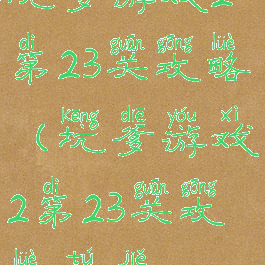 坑爹游戏2
dì guān gōng lüè
第23关攻略
kēng diē yóu xì
(坑爹游戏
dì guān gōng
2第23关攻
lüè tú jiě